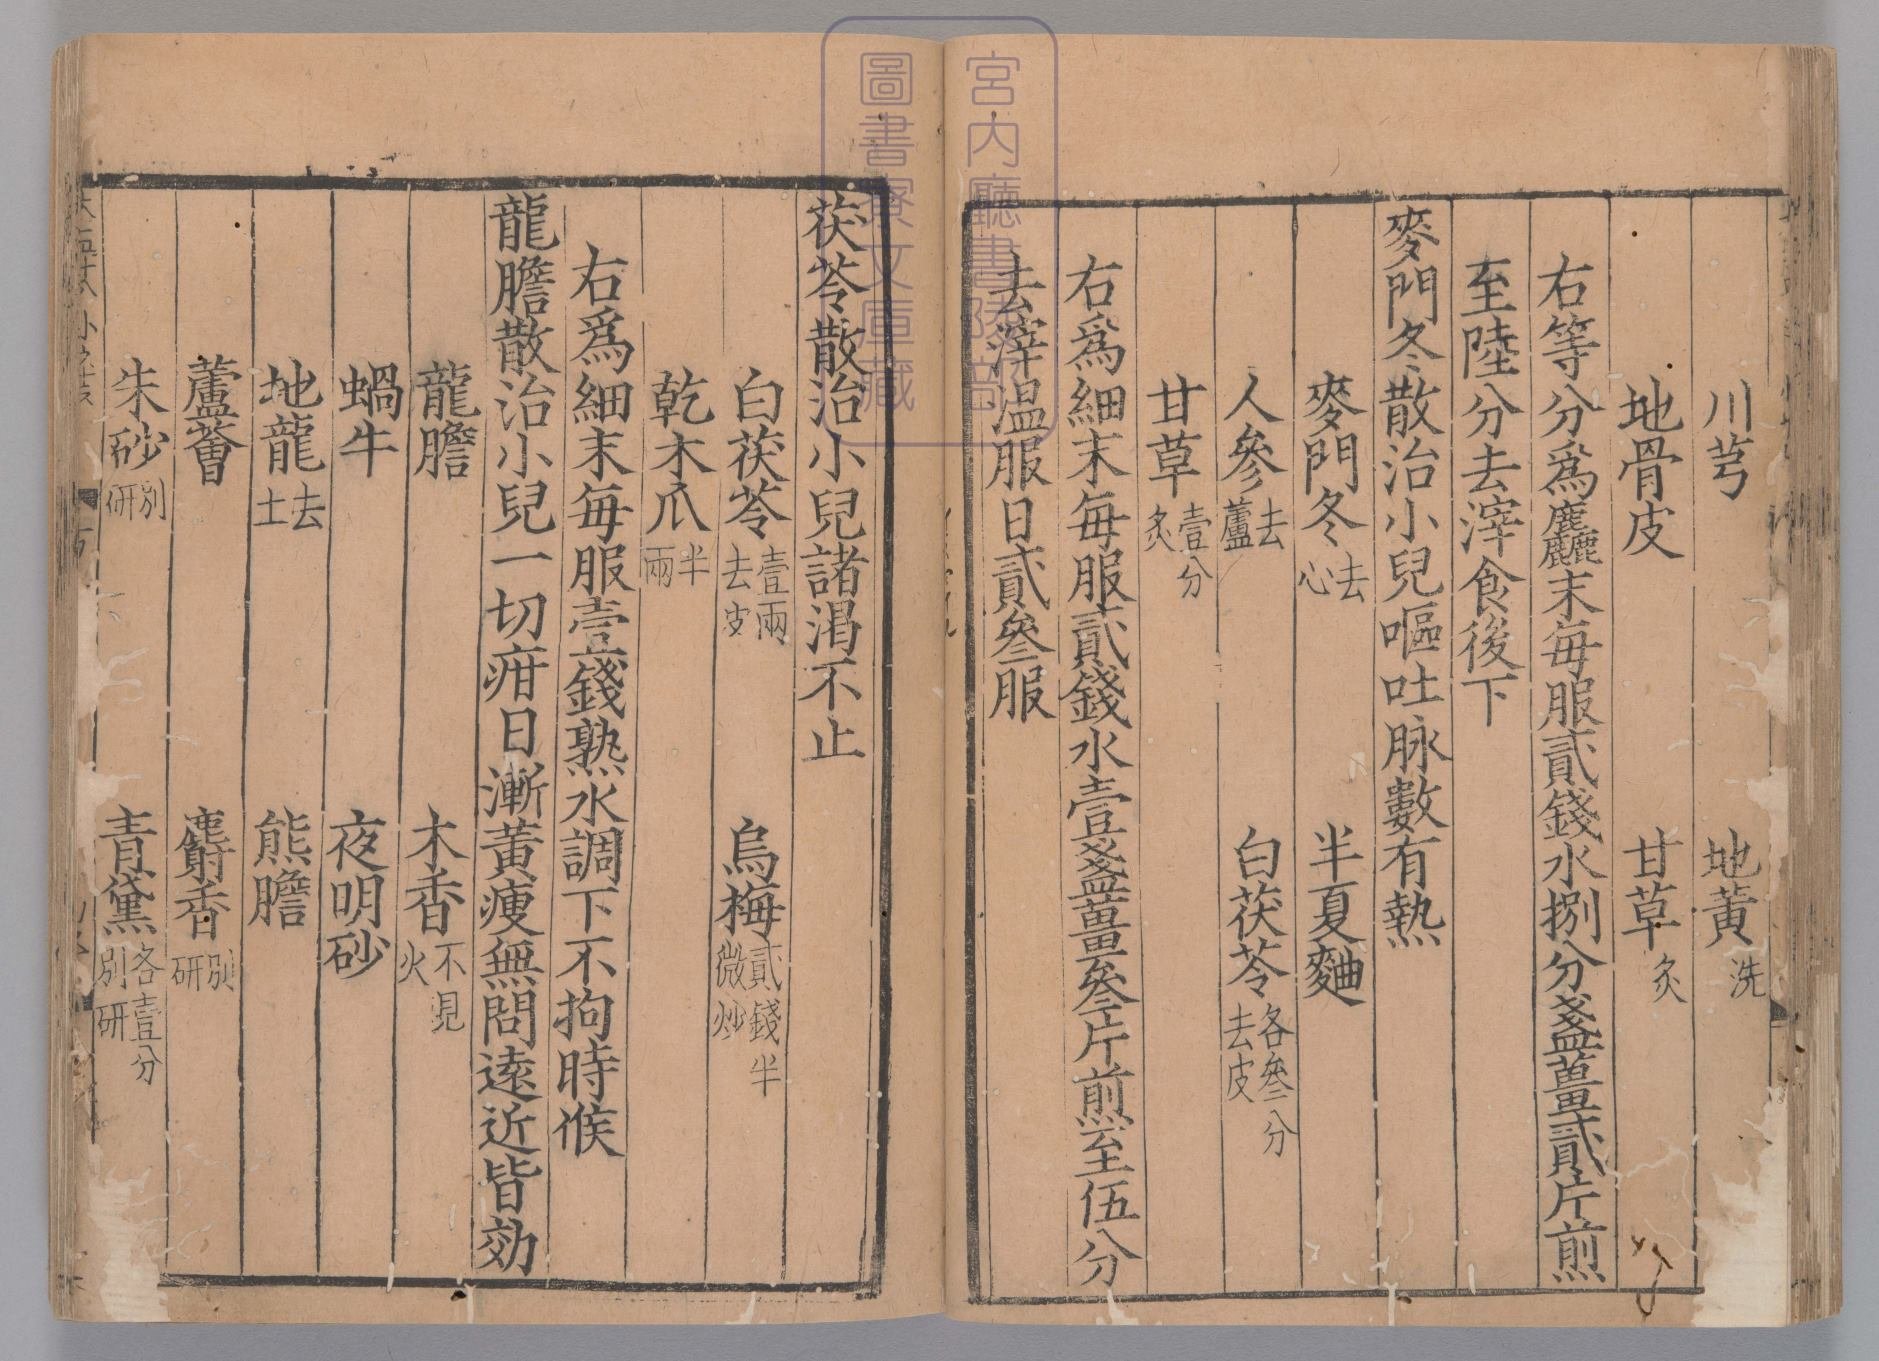 川芎　地黃洗
地骨皮　甘草炙
右等分爲麤末每服貳錢水捌分盞薑貳片煎
至陸分去滓食後下
麥門冬散治小兒嘔吐脉數有熱
麥門冬去心　半夏麯
人參去蘆　白茯苓各叁分去皮
甘草壹分炙
右爲細末每服貳錢水壹盞薑叁片煎至伍分
去滓温服日貳叁服
茯苓散治小兒諸渴不止
白茯苓壹兩去皮　烏梅貳錢半微炒
乾木爪半兩
右爲細末每服壹錢熟水調下不拘時候
龍膽散治小兒一切疳日漸黃瘦無問遠近皆効
龍膽　木香不見火
蝸牛　夜明砂
地龍去土　熊膽
蘆薈　麝香別研
朱砂別研　青黛各壹分別研
宮内廳書陵部
圖書寮文庫藏